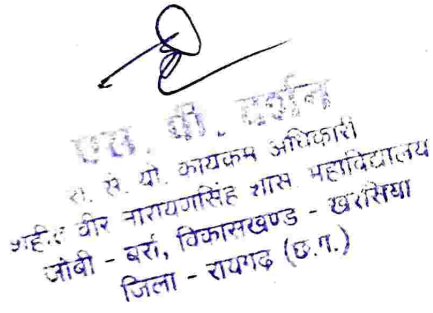 एस. पी. दर्शन
रा. से. यो. कायकम अधिकारी
शहीद वीर नारायणसिंह शास महाविद्यालय
जोबी - बर्रा, विकासखण्ड - खरसिया
जिला - रायगढ़ (छ.ग.)